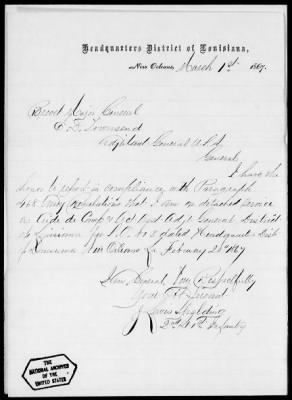 Headquarters District of Louisiana,
New Orleans, March 1st 1867.
Brevet Major General
E. D. Townsend
Adjutant General U.S.A.
General,
I have the
honor to report in compliance with Paragraph
468 Army Regulations that I am on detached service
as Aide de Camp & Act Asst Adjt General District
of Louisiana per S.O. No dated Headquarters Dist
of Louisiana New Orleans La February 28 1867
I am General Very Respectfully
Your Obt Servant
THE
NATIONAL ARCHIVES
OF THE
UNITED STATES
Infantry